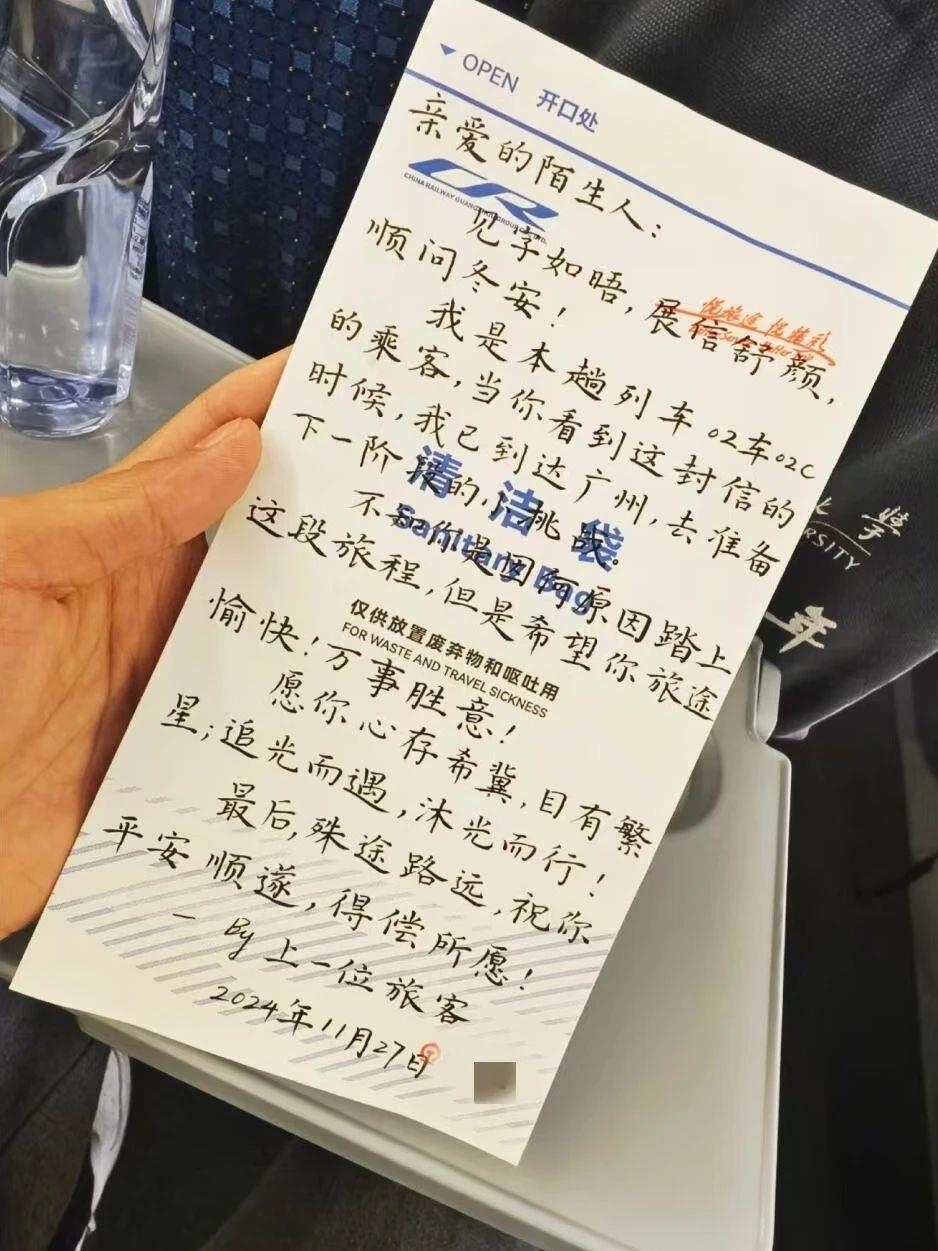 OPEN 开口处
亲爱的陌生人:
CHINA RAILWAY GUANGZHOU GROUP CO., LTD.
见字如晤,展信舒颜,
顺问冬安!
我是本趟列车02车02C
的乘客,当你看到这封信的
时候,我已到达广州,去准备
下一阶段的小挑战。
清洁袋
Sanitary Bag
不知你是因何原因踏上
这段旅程,但是希望你旅途
愉快!万事胜意!
仅供放置废弃物和呕吐用
FOR WASTE AND TRAVEL SICKNESS
愿你心存希冀,目有繁
星;追光而遇,沐光而行!
最后,殊途路远,祝你
平安顺遂,得偿所愿!
一 By 上一位旅客
2024年11月27日
RSITY